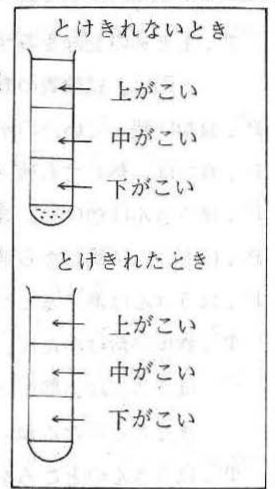 とけきれないとき
上がこい
中がこい
下がこい
とけきれたとき
上がこい
中がこい
下がこい